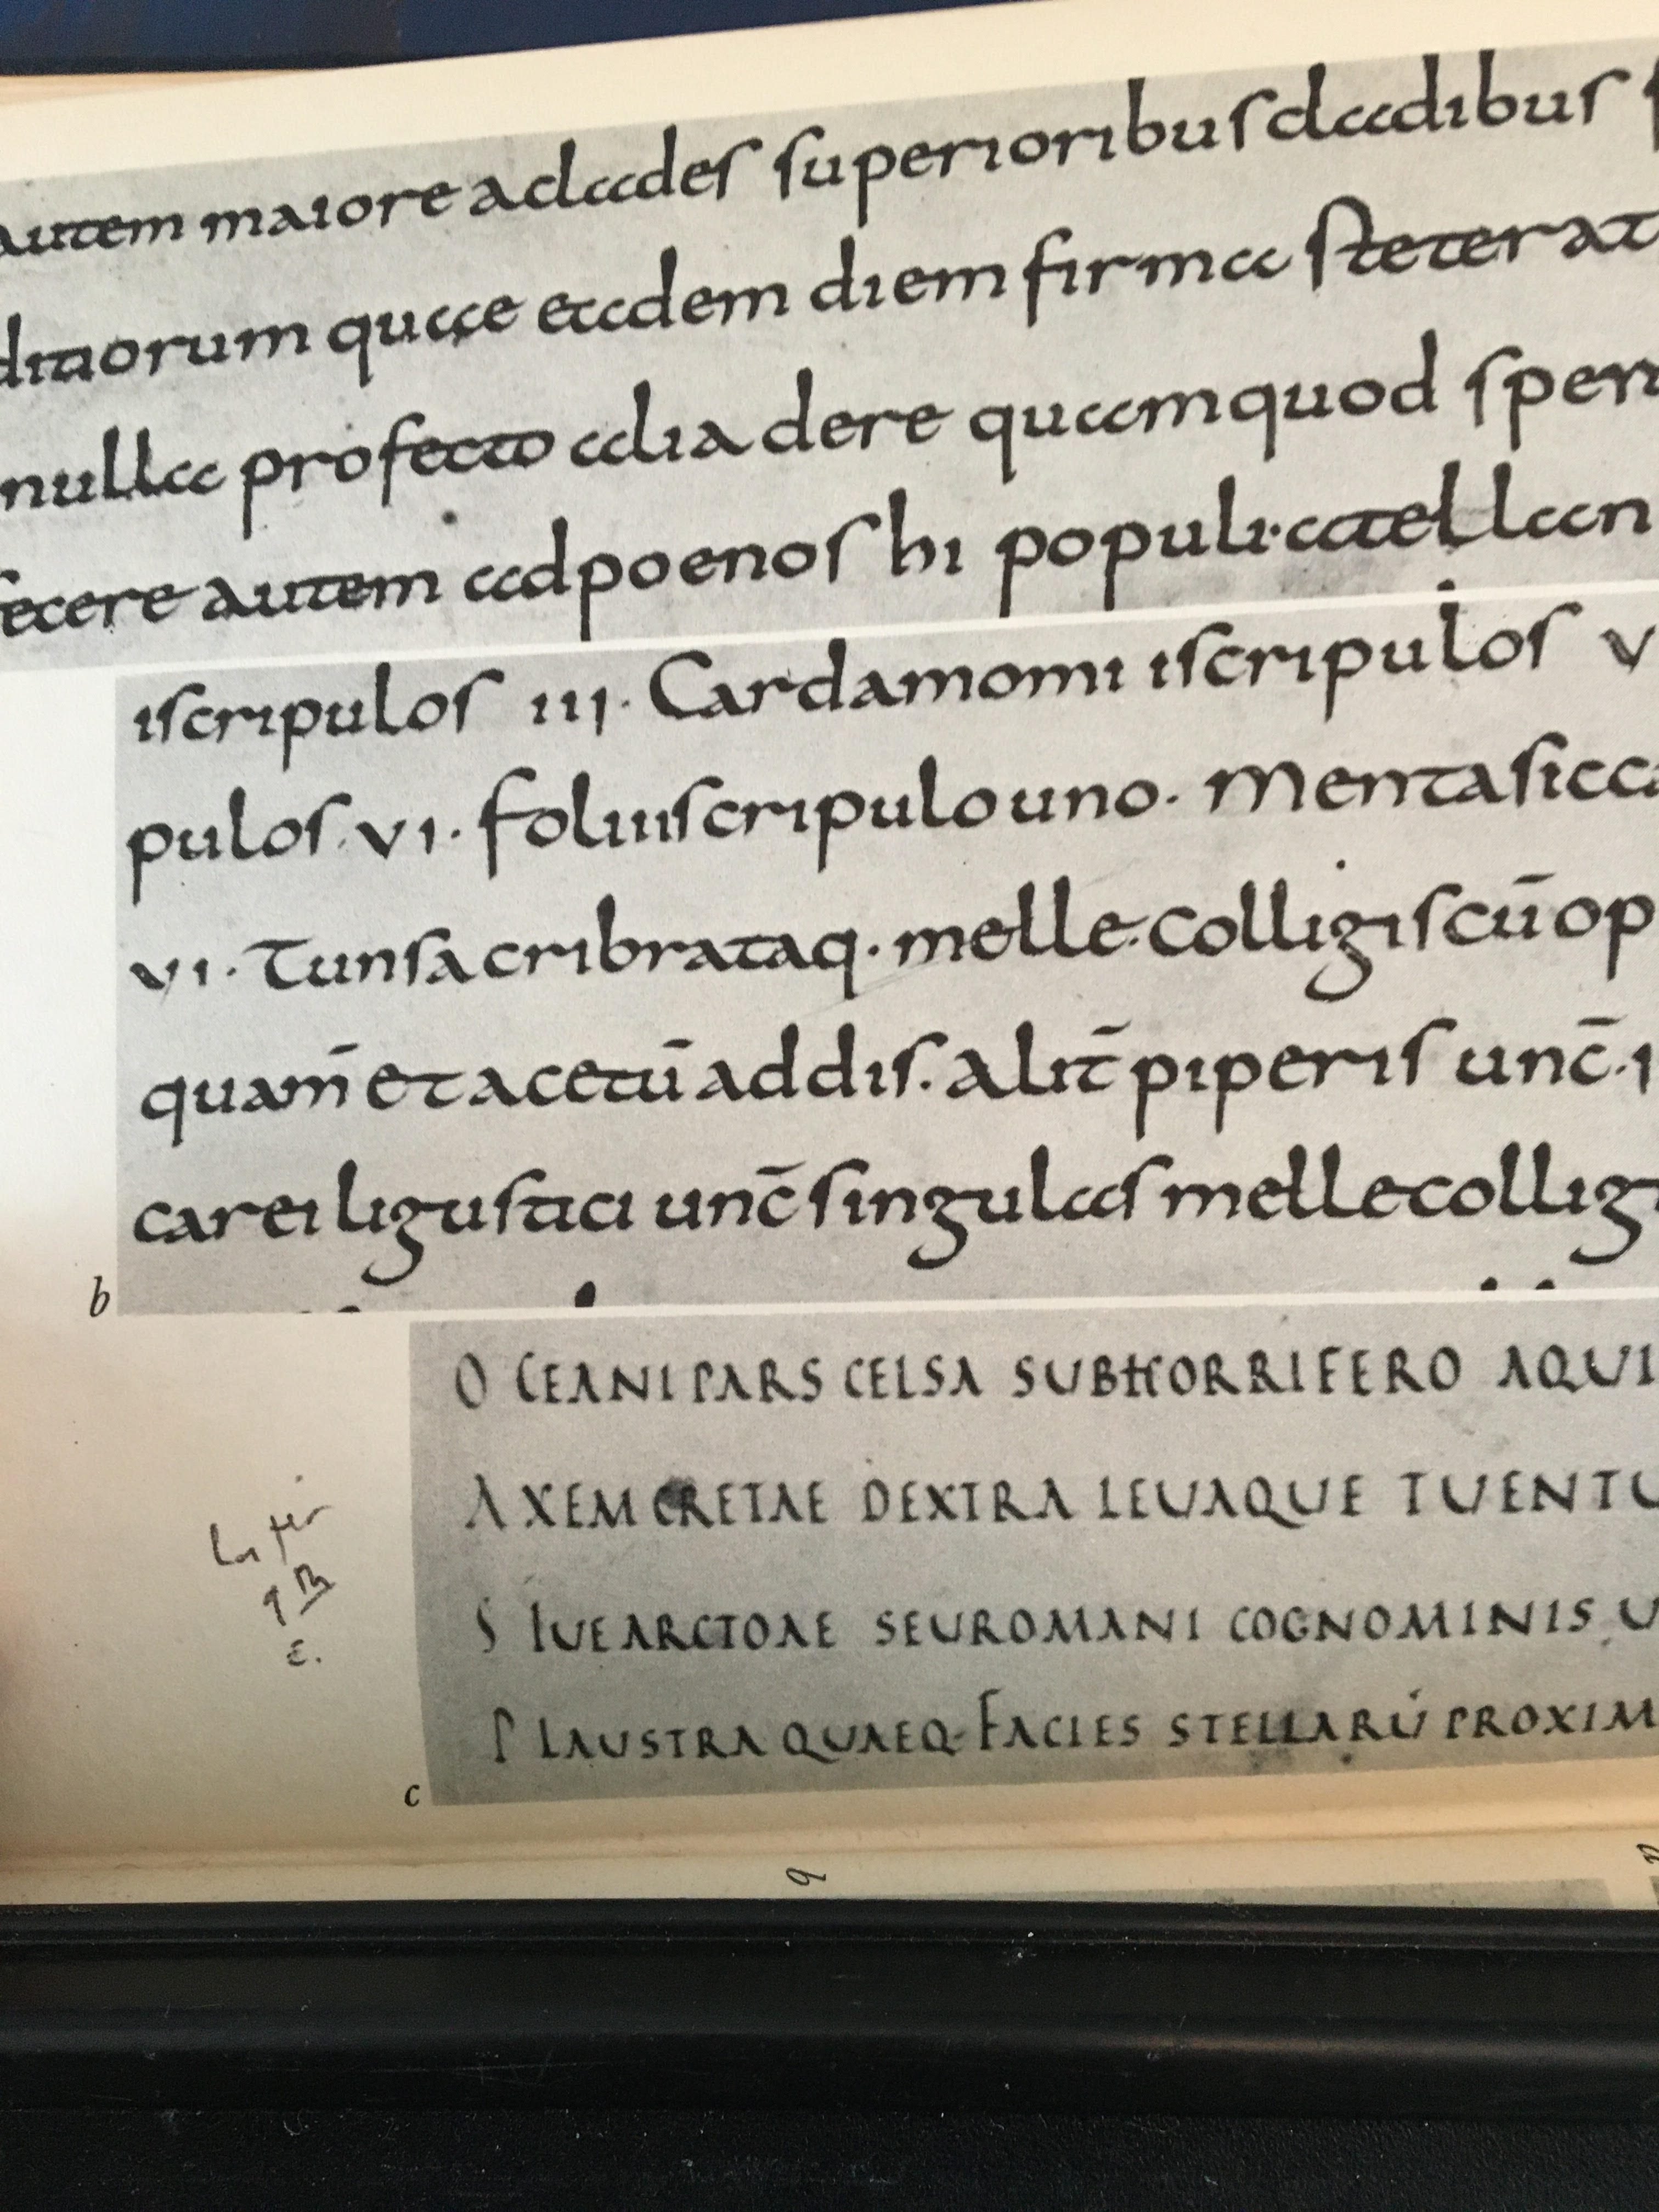 autem maiore ad clades superioribus cladibus
ditiorum quae eadem diem firma steterat
nulla profecto alia de re quam quod
fecere autem ad poenos hi populi · atellan
iscripulos III · Cardamomi iscripulos V
pulos · VI · foliiiscripulo uno · Menta sicca
VI · Tunsa cribrataq · melle · colligis cū op
quam̄ et acetū addis · alit̄ piperis unc̄ · I
carei ligustici unc̄ singulas melle collig
b
O CEANI PARS CELSA SUB HORRIFERO AQUI
A XEM CRETAE DEXTRA LEUAQUE TUENTU
S IUE ARCTOAE SEU ROMANI COGNOMINIS U
P LAUSTRA QUAEQ · FACIES STELLARŪ PROXIM
c
b